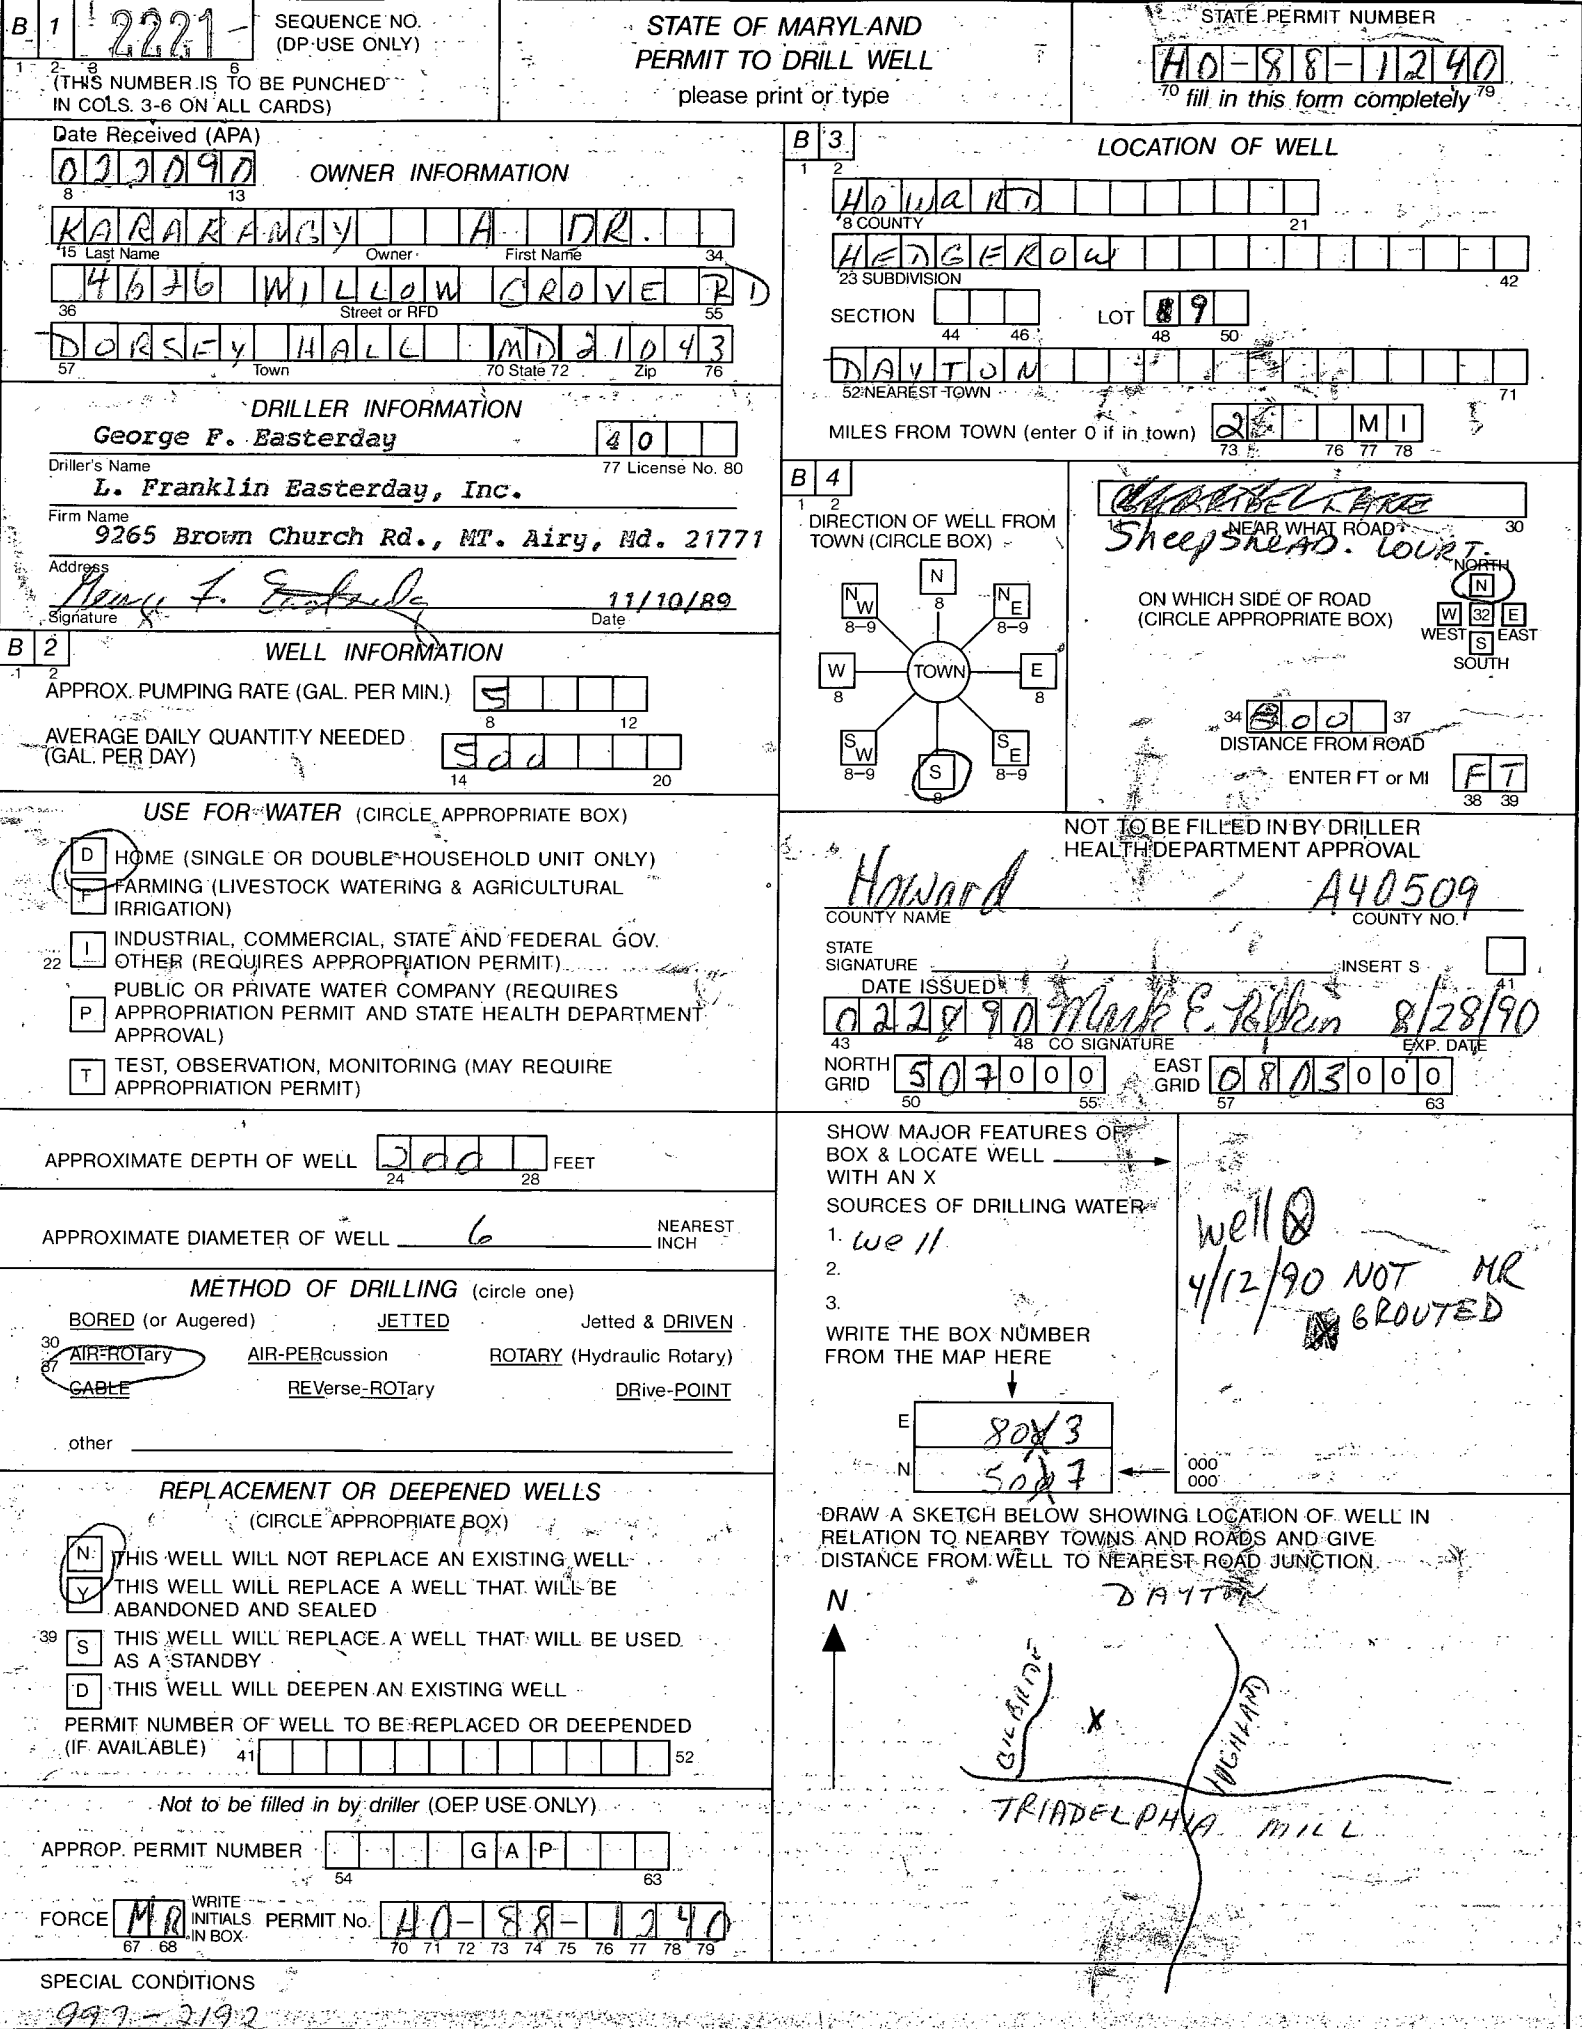 B 1 2221 SEQUENCE NO. (DP USE ONLY)
1 2 3 6
(THIS NUMBER IS TO BE PUNCHED
IN COLS. 3-6 ON ALL CARDS)
STATE OF MARYLAND
PERMIT TO DRILL WELL
please print or type
STATE PERMIT NUMBER
HO-88-1240
70 fill in this form completely 79
Date Received (APA)
022090 OWNER INFORMATION
8 13
KARARANGY A DR.
15 Last Name Owner First Name 34
4626 WILLOW GROVE RD
36 Street or RFD 55
DORSEY HALL MD 21043
57 Town 70 State 72 Zip 76
DRILLER INFORMATION
George F. Easterday 40
Driller's Name 77 License No. 80
L. Franklin Easterday, Inc.
Firm Name
9265 Brown Church Rd., MT. Airy, Md. 21771
Address
George F. Easterday 11/10/89
Signature Date
B 2 WELL INFORMATION
1 2
APPROX. PUMPING RATE (GAL. PER MIN.) 5
8 12
AVERAGE DAILY QUANTITY NEEDED
(GAL. PER DAY) 500
14 20
USE FOR WATER (CIRCLE APPROPRIATE BOX)
D HOME (SINGLE OR DOUBLE HOUSEHOLD UNIT ONLY)
F FARMING (LIVESTOCK WATERING & AGRICULTURAL
IRRIGATION)
22 I INDUSTRIAL, COMMERCIAL, STATE AND FEDERAL GOV.
OTHER (REQUIRES APPROPRIATION PERMIT)
P PUBLIC OR PRIVATE WATER COMPANY (REQUIRES
APPROPRIATION PERMIT AND STATE HEALTH DEPARTMENT
APPROVAL)
T TEST, OBSERVATION, MONITORING (MAY REQUIRE
APPROPRIATION PERMIT)
APPROXIMATE DEPTH OF WELL 200 FEET
24 28
APPROXIMATE DIAMETER OF WELL 6 NEAREST
INCH
METHOD OF DRILLING (circle one)
BORED (or Augered) JETTED Jetted & DRIVEN
30 AIR-ROTary AIR-PERcussion ROTARY (Hydraulic Rotary)
37 CABLE REVerse-ROTary DRive-POINT
other
REPLACEMENT OR DEEPENED WELLS
(CIRCLE APPROPRIATE BOX)
N THIS WELL WILL NOT REPLACE AN EXISTING WELL
Y THIS WELL WILL REPLACE A WELL THAT WILL BE
ABANDONED AND SEALED
39 S THIS WELL WILL REPLACE A WELL THAT WILL BE USED
AS A STANDBY
D THIS WELL WILL DEEPEN AN EXISTING WELL
PERMIT NUMBER OF WELL TO BE REPLACED OR DEEPENDED
(IF AVAILABLE) 41 52
Not to be filled in by driller (OEP USE ONLY)
APPROP. PERMIT NUMBER GAP
54 63
FORCE MR WRITE INITIALS IN BOX PERMIT No. HO-88-1240
67 68 70 71 72 73 74 75 76 77 78 79
SPECIAL CONDITIONS
997-2192
B 3 LOCATION OF WELL
1 2
HOWARD
8 COUNTY 21
HEDGEROW
23 SUBDIVISION 42
SECTION LOT 9
44 46 48 50
DAYTON
52 NEAREST TOWN 71
MILES FROM TOWN (enter 0 if in town) 2 MI
73 76 77 78
B 4
1 2
DIRECTION OF WELL FROM
TOWN (CIRCLE BOX)
N
8
NW NE
8-9 8-9
W TOWN E
8 8
SW SE
8-9 8-9
S
8
11 NEAR WHAT ROAD 30
SheepsheAD. COURT.
NORTH
N
ON WHICH SIDE OF ROAD
(CIRCLE APPROPRIATE BOX)
W 32 E
WEST EAST
S
SOUTH
34 800 37
DISTANCE FROM ROAD
ENTER FT or MI FT
38 39
NOT TO BE FILLED IN BY DRILLER
HEALTH DEPARTMENT APPROVAL
Howard A40509
COUNTY NAME COUNTY NO.
STATE
SIGNATURE INSERT S
41
DATE ISSUED
022890 Mark E. Rifkin 8/28/90
43 48 CO SIGNATURE EXP. DATE
NORTH GRID 507000 EAST GRID 0803000
50 55 57 63
SHOW MAJOR FEATURES OF
BOX & LOCATE WELL
WITH AN X
SOURCES OF DRILLING WATER
1. well
2.
3.
well X
4/12/90 NOT MR
GROUTED
WRITE THE BOX NUMBER
FROM THE MAP HERE
E 803
N 507
000
000
DRAW A SKETCH BELOW SHOWING LOCATION OF WELL IN
RELATION TO NEARBY TOWNS AND ROADS AND GIVE
DISTANCE FROM WELL TO NEAREST ROAD JUNCTION
DAYTON
N
X
HIGHLAND
TRIADELPHIA MILL